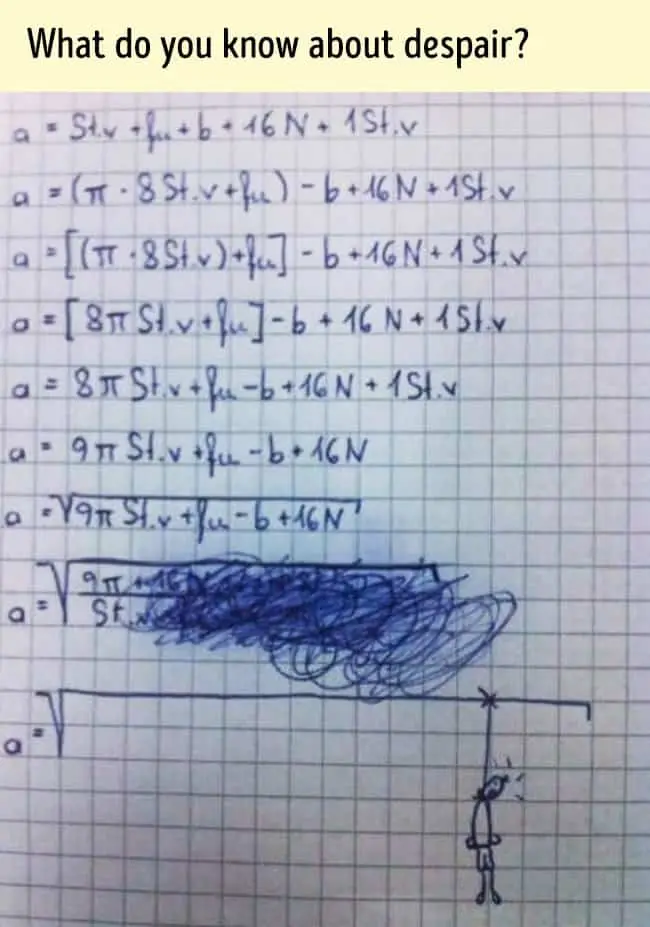 What do you know about despair?
a = St.v + fu + b + 16 N + 1 St.v
a = (π · 8 St.v + fu) - b + 16 N + 1 St.v
a = [(π · 8 St.v) + fu] - b + 16 N + 1 St.v
a = [8π St.v + fu] - b + 16 N + 1 St.v
a = 8π St.v + fu - b + 16 N + 1 St.v
a = 9π St.v + fu - b + 16 N
a = √9π St.v + fu - b + 16 N
a = √9π + 16
St.
a = √